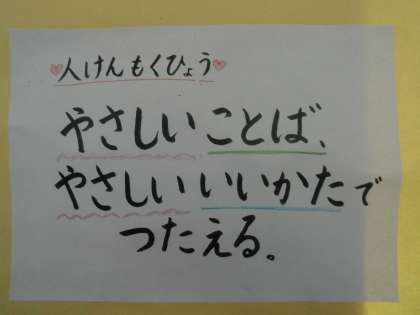 人けんもくひょう
やさしいことば、
やさしいいいかたで
つたえる。